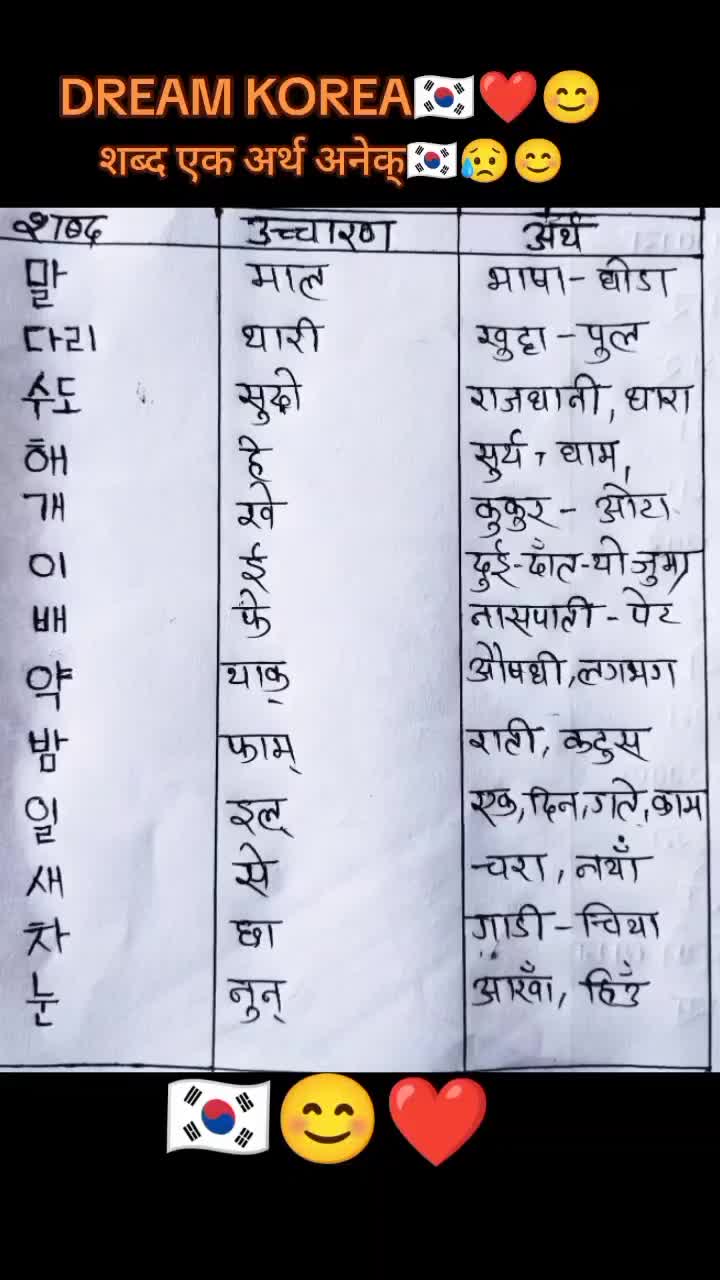 DREAM KOREA🇰🇷❤️😊
शब्द एक अर्थ अनेक्🇰🇷😥😊
शब्द उच्चारण अर्थ
말 माल भाषा - घोडा
다리 थारी खुट्टा - पुल
수도 सुदो राजधानी, धारा
해 हे सुर्य, घाम,
개 खे कुकुर - ओटा
이 ई दुई-दाँत-यो जुम्रा
배 फे नासपाती - पेट
약 याक् औषधी, लगभग
밤 फाम् राती, कटुस
일 इल् एक, दिन, गते, काम
새 से चरा, नयाँ
차 छा गाडी - चिया
눈 नुन् आँखा, हिउँ
🇰🇷😊❤️